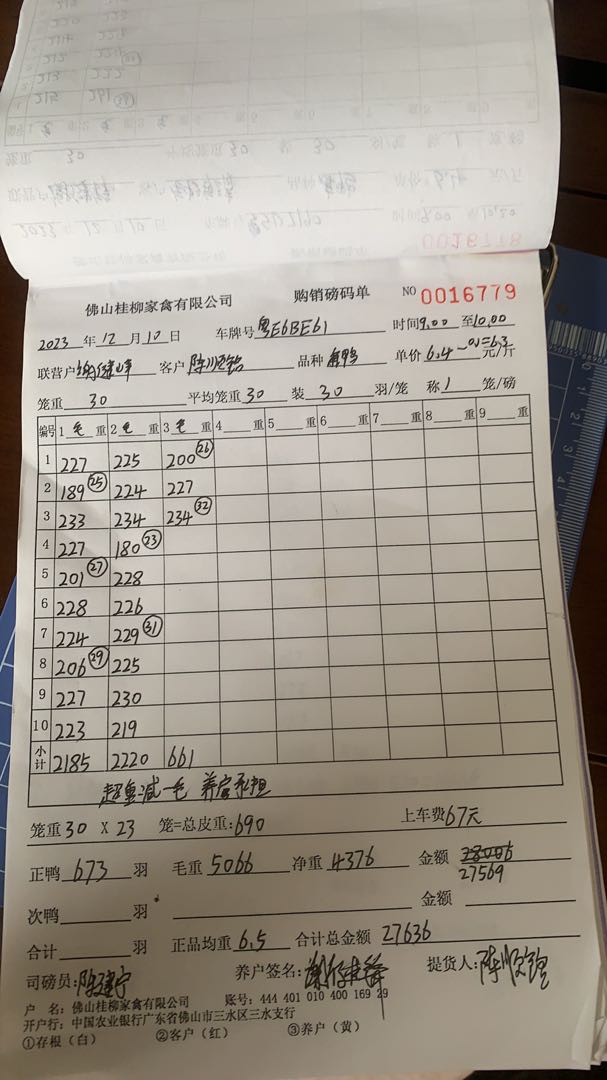 佛山桂柳家禽有限公司 购销磅码单 NO 0016779
2023 年 12 月 10 日 车牌号 粤E6BE61 时间 9.00 至 10.00
联营户 客户 品种 单价 6.4-0.1=6.3 元/斤
笼重 30 平均笼重 30 装 30 羽/笼 称 1 笼/磅
编号 1 毛 重 2 毛 重 3 毛 重 4 重 5 重 6 重 7 重 8 重 9 重
1 227 225 200 26
2 189 25 224 227
3 233 234 234 32
4 227 180 23
5 201 27 228
6 228 226
7 224 229 31
8 206 29 225
9 227 230
10 223 219
小计 2185 2220 661
超重减一毛 养户承担
笼重 30 X 23 笼=总皮重: 690 上车费 67元
正鸭 673 羽 毛重 5066 净重 4376 金额 28006
27569
次鸭 羽 金额
合计 羽 正品均重 6.5 合计总金额 27636
司磅员: 陈建宁 养户签名: 提货人:
户 名: 佛山桂柳家禽有限公司 账号: 444 401 010 400 169 29
开户行: 中国农业银行广东省佛山市三水区三水支行
①存根（白） ②客户（红） ③养户（黄）